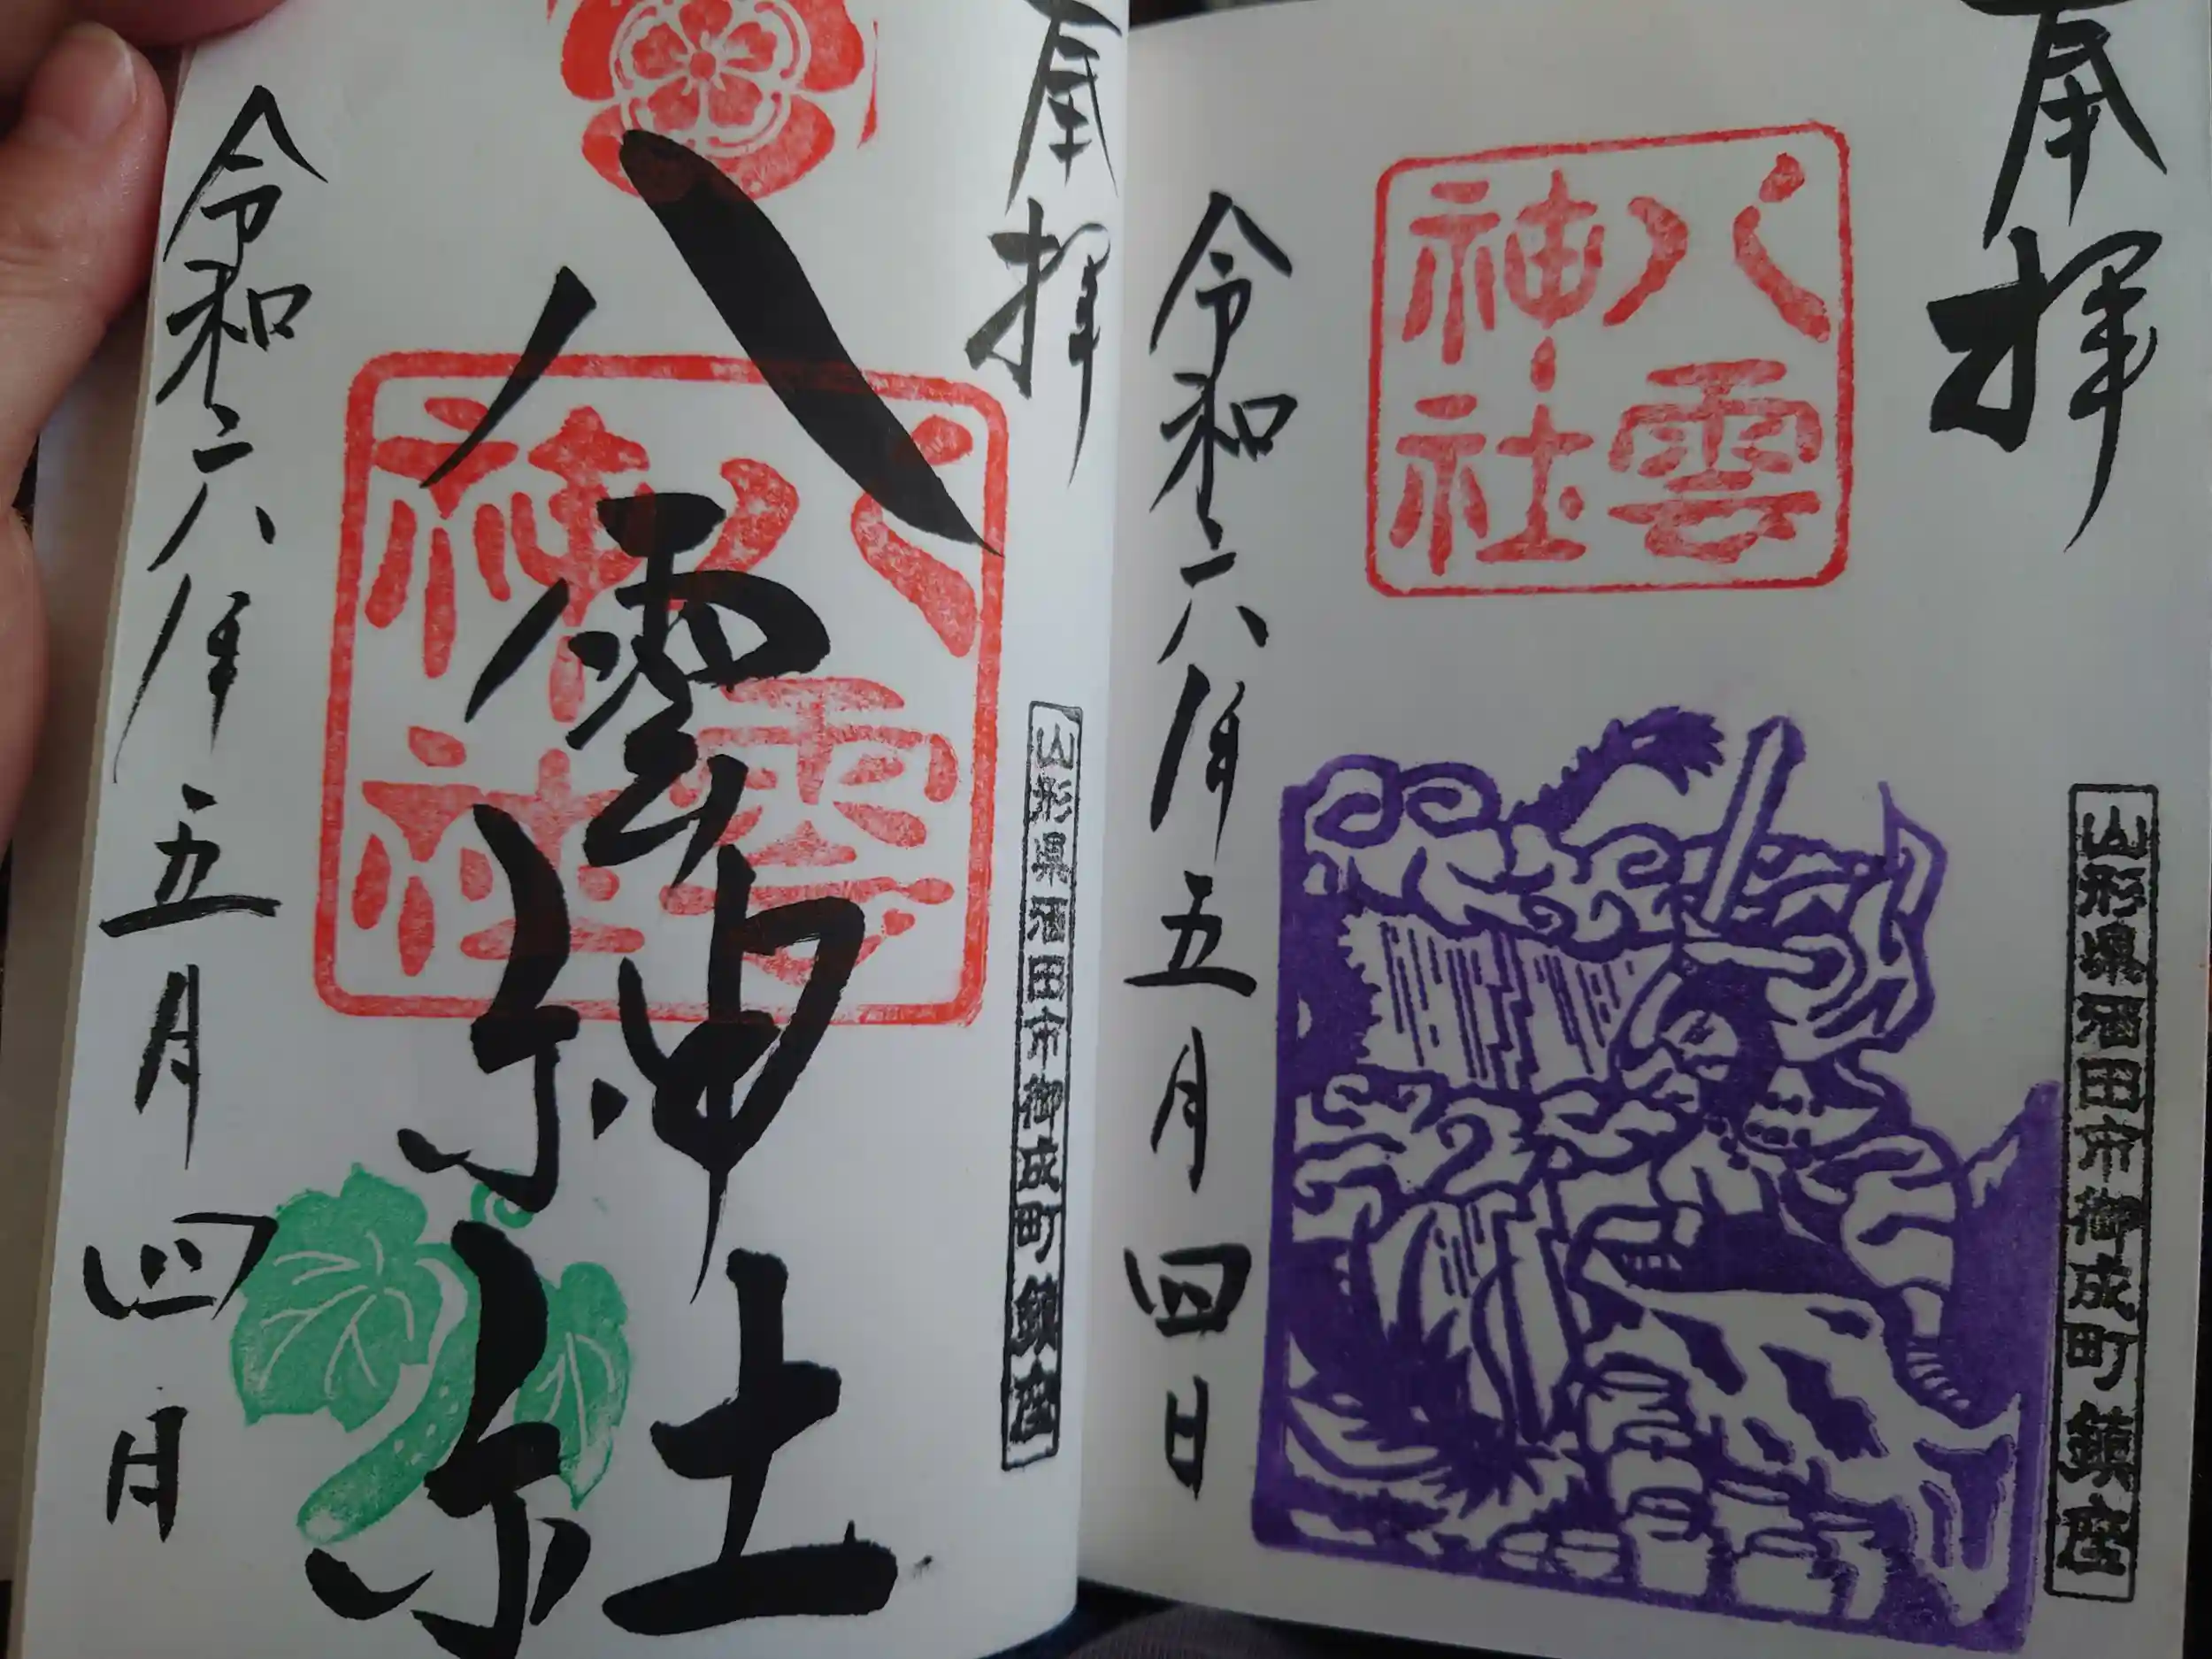 奉拝
八雲
神社
山形県酒田市御成町鎮座
令和六年五月四日
奉拝
八雲神社
八雲
神社
山形県酒田市御成町鎮座
令和六年五月四日